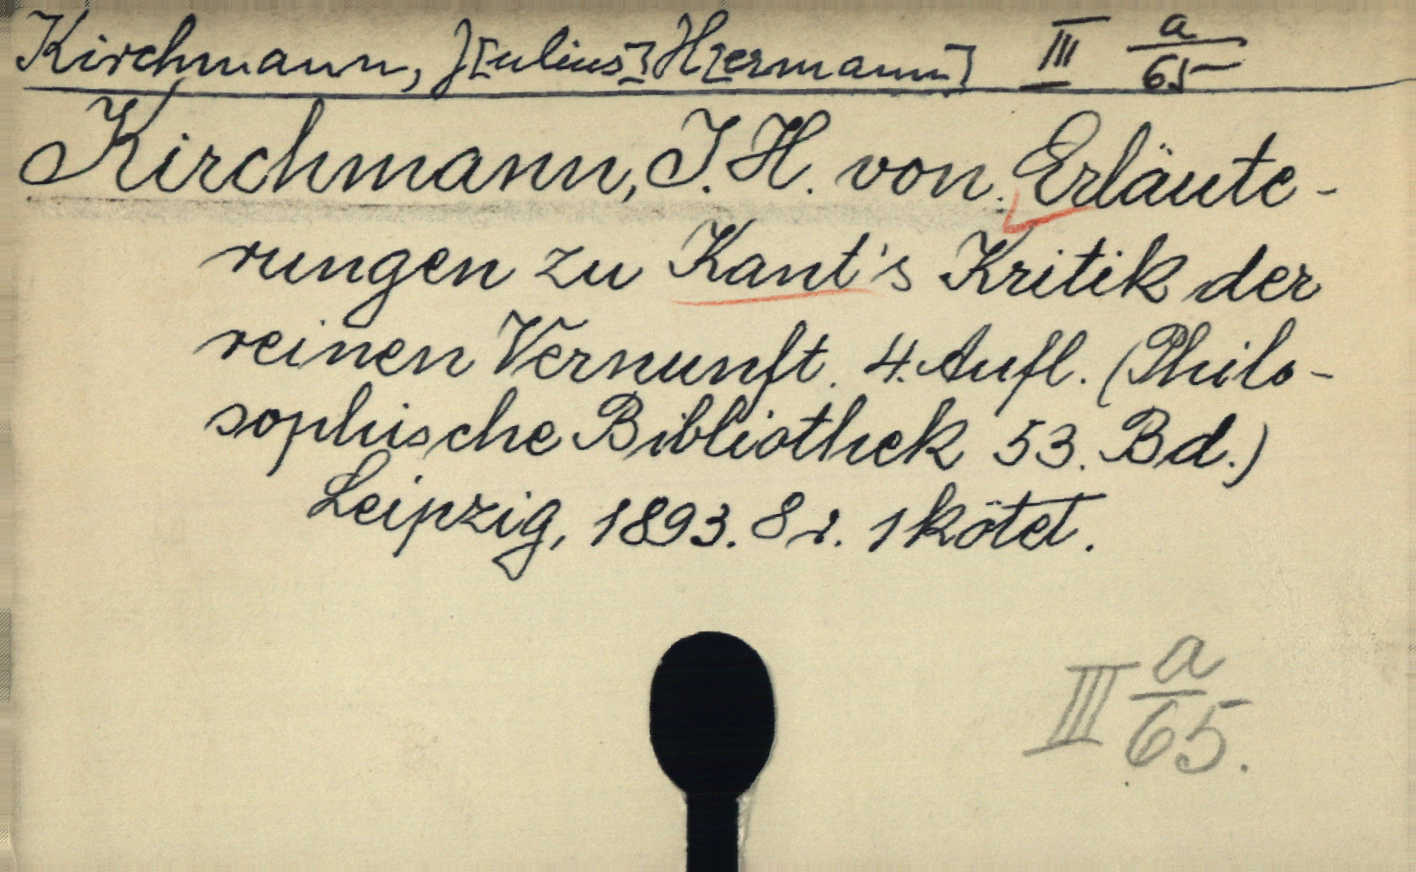 Kirchmann, J[ulius] H[ermann] III a/65
Kirchmann, J. H. von. Erläute-
rungen zu Kant's Kritik der
reinen Vernunft. 4. Aufl. (Philo-
sophische Bibliothek 53. Bd.)
Leipzig, 1893. 8r. 1 kötet.
III a/65.